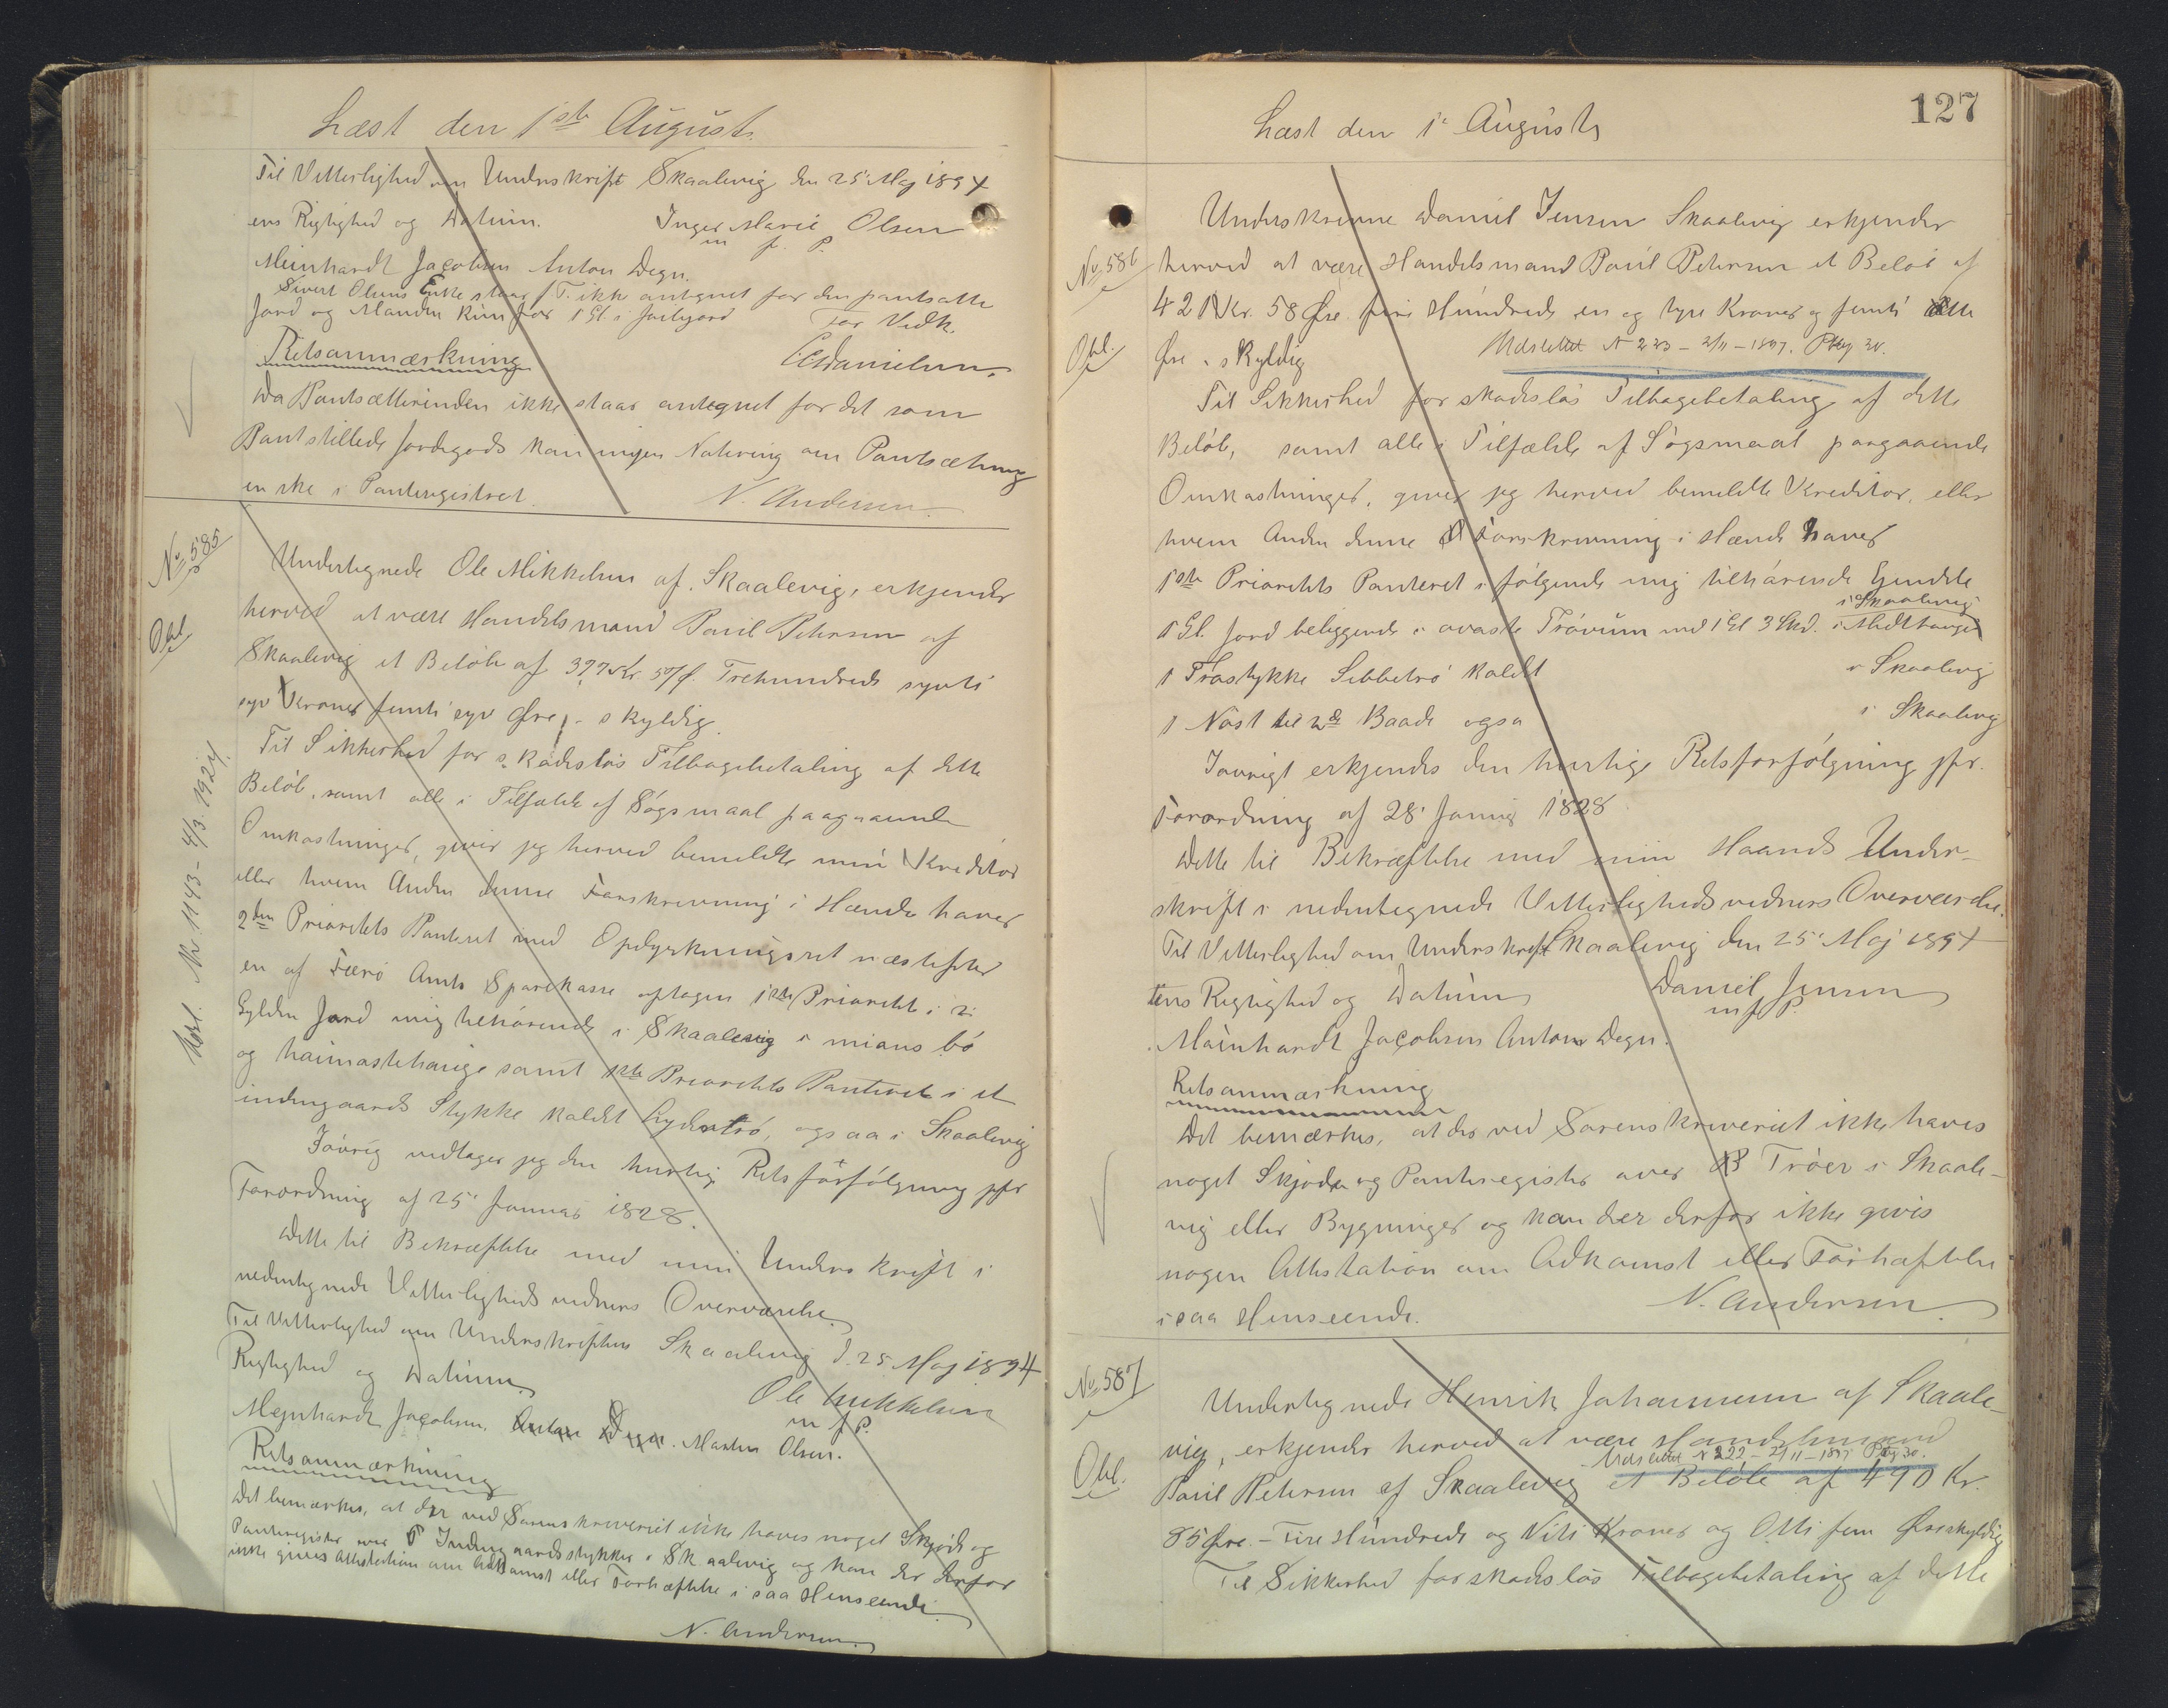 Læst den 1ste August
Til Vitterlighed om Underskrift Skaalevig den 25' Maj 1894
ens Rigtighed og Datum. Inger Marie Olsen
m f. P.
Meinhardt Jaçobsen Anton Degn.
Sivert Olsens Enke staar f. T. ikke antegnet for den pantsatte
Jord og Manden kun for 1 Gl. i Jord
For Vidk.
Retsanmærkning
Danielsen.
Da Pantsætterinden ikke staar antegnet for det som
Pant stillede Jordegods kan ingen Notering om Pantsætning
en ske i Panteregistret.
N. Andersen.
No. 585
Obl
Undertegnede Ole Mikkelsen af Skaalevig, erkjender
herved at være Handelsmand Poul Petersen af
Skaalevig et Beløb af 377 Kr. 57 Ø. Trehundrede syvti
syv Kroner femti syv Øre, - skyldig.
Til Sikkerhed for skadesløs Tilbagebetaling af dette
Beløb, samt alle i Tilfælde af Søgsmaal paagaaende
Omkostninger, giver jeg herved bemeldte min Kreditor
eller hvem Anden denne Forskrivning i Hænde haver
2den Prioritets Panteret med Oprykningsret næstefter
en af Færø Amts Sparekasse optagen 1ste Prioritet i 2
Gylden Jord mig tilhørende i Skaalevig i mians bø
og haimastehauge samt 1ste Prioritets Panteret i et
indengaards Stykke kaldt trø, ogsaa i Skaalevig
Iøvrig vedtager jeg den hurtige Retsforfølgning jfr
Forordning af 25' Januar 1828.
Dette til Bekræftelse med min Underskrift i
nedentegnede Vitterlighedsvidners Overværelse.
Til Vitterlighed om Underskriftens Skaalevig d. 25 Maj 1894
Rigtighed og Datum.
Ole Mikkelsen
m f P.
Mejnhardt Jaçobsen. Anton Degn. Martin Olsen.
Retsanmærkning
Det bemærkes, at der ved Sorenskriveriet ikke haves noget Skjøde og
Panteregister over Indengaardsstykker i Skaalevig og kan der derfor
ikke gives Attestation om Adkomst eller Forhæftelse i saa Henseende.
N. Andersen.
Udsl. Nr 1143 - 4/3. 1924.
127
Læst den 1' August
No. 586
Obl.
Underskrevne Daniel Jensen Skaalevig erkjender
herved at være Handelsmand Poul Petersen et Beløb af
421 Kr. 58 Øre fire Hundrede en og tyve Kroner og femti otte
Øre - skyldig
Udslettet N 223 - 2/11 - 1897. Ptbg 30.
Til Sikkerhed for skadesløs Tilbagebetaling af dette
Beløb, samt alle i Tilfælde af Søgsmaal paagaaende
Omkostninger, giver jeg herved bemeldte Kreditor, eller
hvem Anden denne Forskrivning i Hænde haver
1ste Prioritets Panteret i følgende mig tilhørende Ejendele
1 Gl. Jord beliggende i ovaste Trøvum med 1 Gl 3 Skd. i Midthauge
i Skaalevig
1 Trøstykke Sebbetrø kaldt i Skaalevig
1 Nøst til 2de Baade ogsa i Skaalevig
Iøvrigt erkjendes den hurtige Retsforfølgning jfr.
Forordning af 28' Januar 1828
Dette til Bekræftelse med min Haands Under-
skrift i nedentegnede Vitterlighedsvidners Overværelse.
Til Vitterlighed om Underskrif Skaalevig den 25' Maj 1894
tens Rigtighed og Datum
Daniel Jensen
m f P.
Mainhardt Jaçobsen Anton Degn.
Retsanmærkning
Det bemærkes, at der ved Sorenskriveriet ikke haves
noget Skjøde og Panteregister over Trøer i Skaale-
vig eller Bygninger og kan der derfor ikke gives
nogen Attestation om Adkomst eller Forhæftelse
i saa Henseende.
N. Andersen
No. 587
Obl.
Undertegnede Henrik Johannesen af Skaale-
vig, erkjender herved at være Handelsmand
Udslettet N 222 - 2/11 - 1897 Ptbg 30.
Poul Petersen af Skaalevig et Beløb af 490 Kr.
85 Øre. - Fire Hundrede og Niti Kroner og Otti fem Øre skyldig
Til Sikkerhed for skadesløs Tilbagebetaling af dette